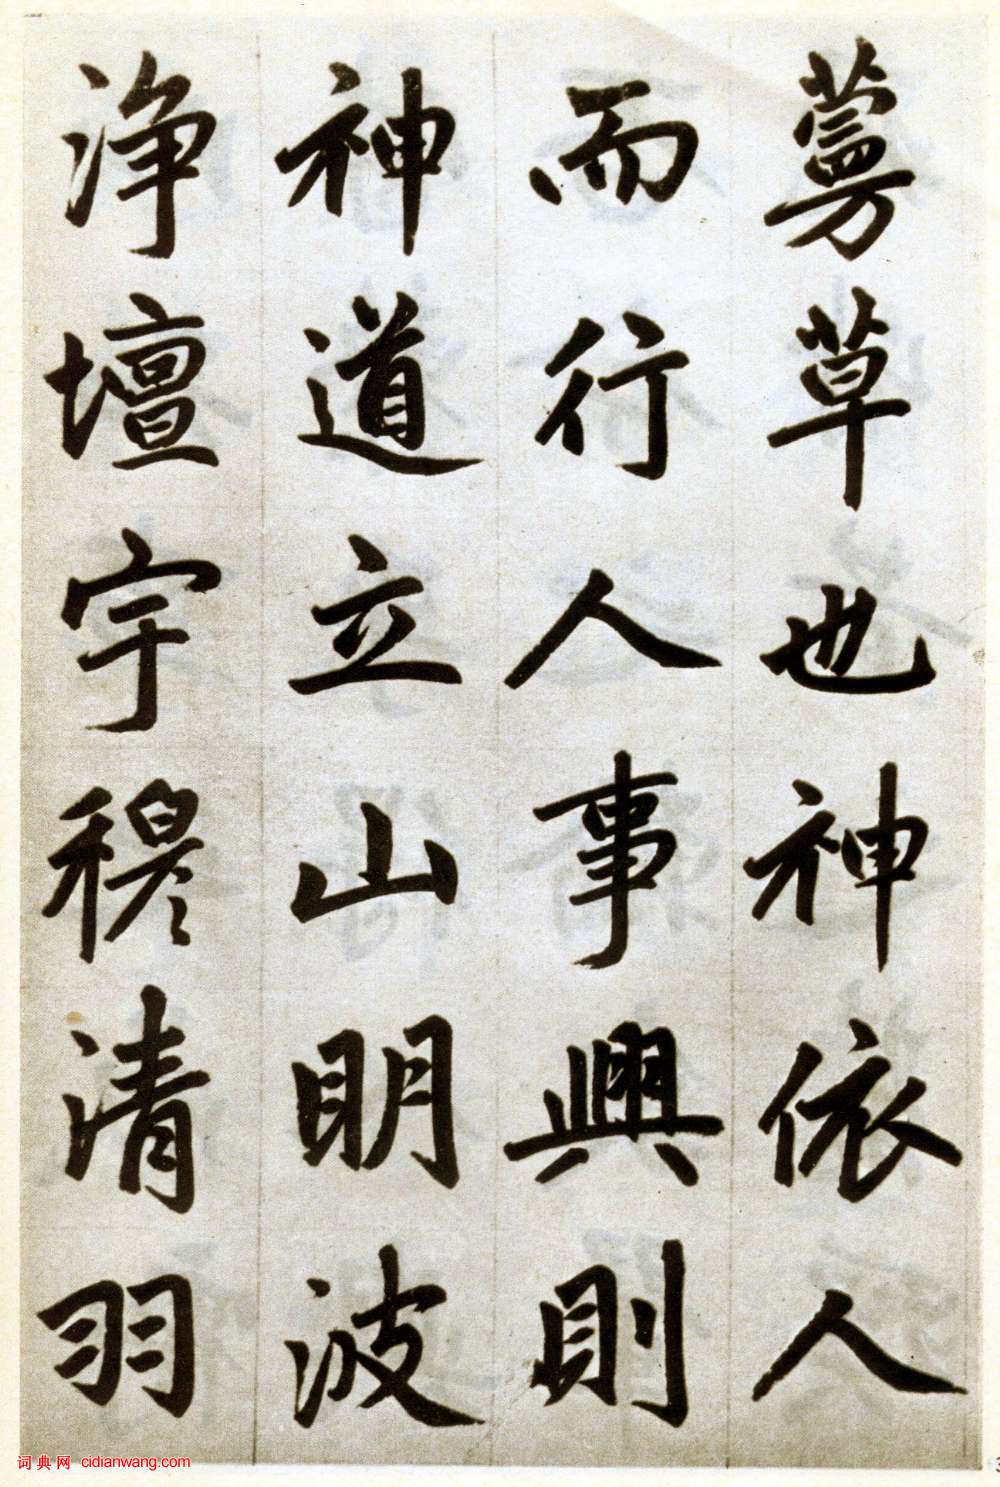 蔓草也神依人
而行人事興則
神道立山明波
浄壇宇穆清羽
词典网 cidianwang.com